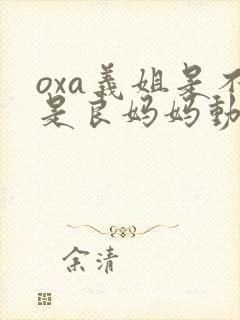 oxa義姐是不
是良妈妈動
余清